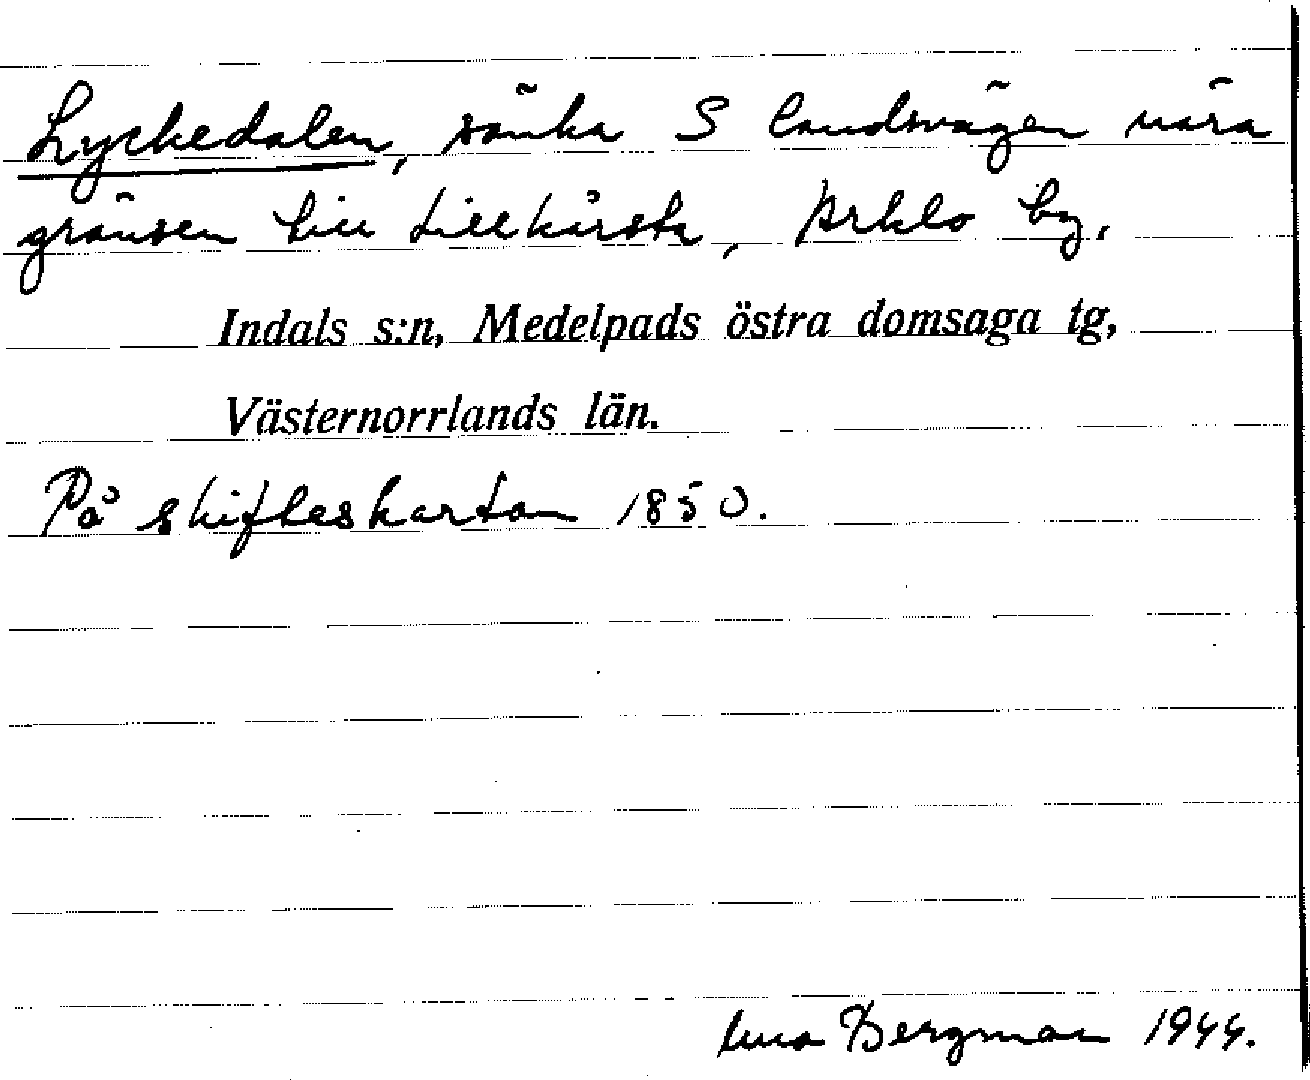 Lyckedalen, sänka S landsvägen nära
gränsen till Lillhärsta, Arklo by,
Indals s:n, Medelpads östra domsaga tg,
Västernorrlands län.
På skifteskartan 1850.
Bergman 1944.